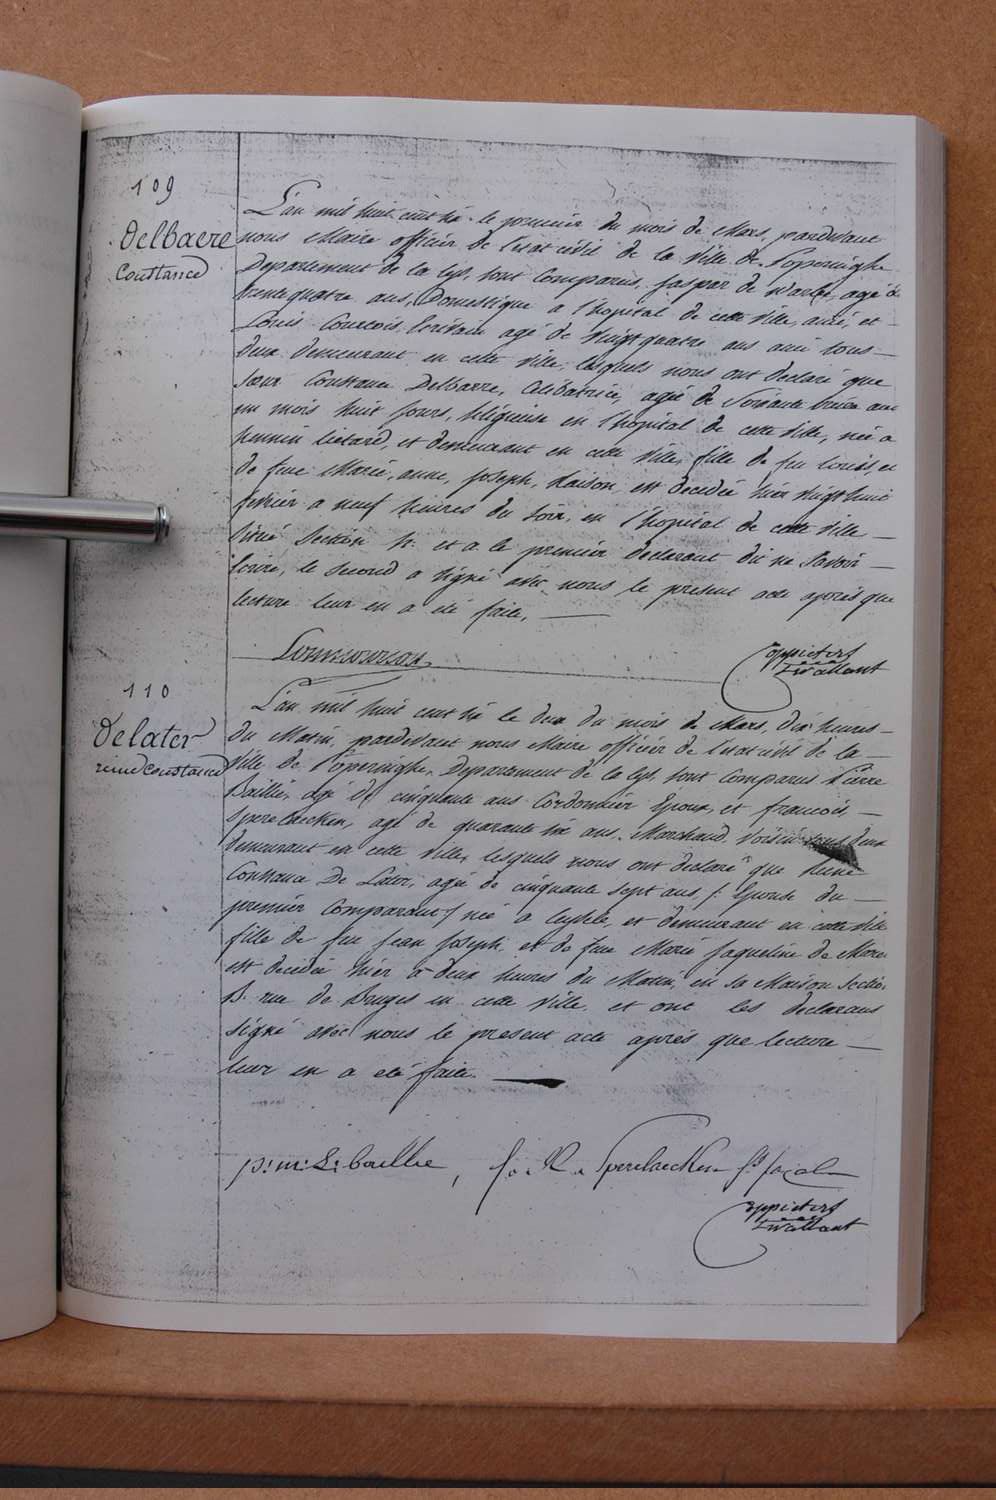 109
Delbaere
Constance
L'an mil huit cent dix le premier du mois de Mars, pardevant
nous Maire officier de l'etat civil de la ville de Poperinghe
Departement de la Lys, sont Comparus, Jaspar de Warle, agé de
trente quatre ans, Domestique a l'hopital de cette ville, ami, et
Louis Courtois, Ecrivain agé de vingt quatre ans ami tous
deux demeurant en cette ville, lesquels nous ont declaré que
sœur Constance Delbarre, Celibatrice, agée de Soixante ans
un mois huit jours, Réligieuse en l'hopital de cette ville, née a
hennin lietard, et demeurant en cette ville, fille de feu Louis, et
de feue Marie, anne, joseph, Raison, est decedée hier vingt huit
fevrier a neuf heures du soir, en l'hopital de cette ville
Situé Section et a le premier declarant dit ne Savoir
Ecrire, le second a signé avec nous le present acte après que
lecture leur en a été faite.
110
Delater
reine Constance
L'an mil huit cent dix le deux du mois de Mars, dix heures
du Matin, pardevant nous Maire officier de l'etat civil de la
Ville de Poperinghe, Departement de la Lys, sont comparus Pierre
Baillie, agé de cinquante ans Cordonnier Epoux, et francois,
Sperelaecken, agé de quarante six ans, Marchand, Voisin tous deux
demeurant en cette ville, lesquels nous ont declaré que Reine
Constance De Later, agée de cinquante sept ans /: Epouse du
premier Comparant :/ née a et demeurant en cette ville
fille de feu Jean Joseph, et de feue Marie Jaqueline de Mare
est decedée hier à deux heures du Matin, en sa Maison Sectio.
B. rue de Bruges en cette ville. et ont les declarans
signé avec nous le present acte après que lecture
leur en a été faite.